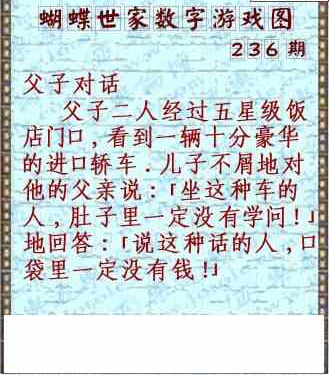 蝴蝶世家数字游戏图
236期
父子对话
父子二人经过五星级饭
店门口,看到一辆十分豪华
的进口轿车.儿子不屑地对
他的父亲说:「坐这种车的
人,肚子里一定没有学问!」
地回答:「说这种话的人,口
袋里一定没有钱!」